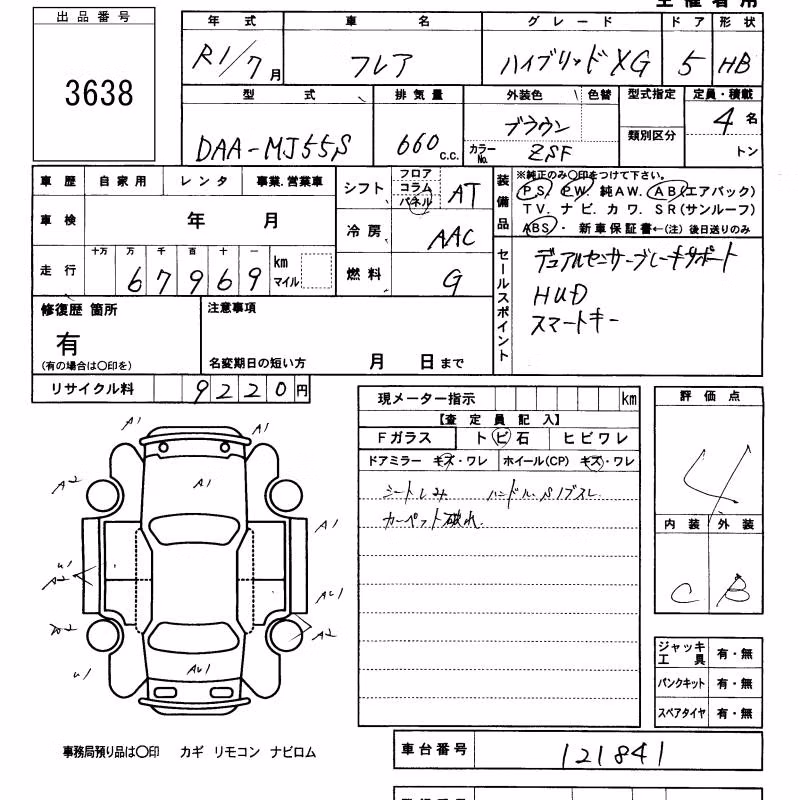 出品番号
3638
年式 車名 グレード ドア 形状
R1/7月 フレア ハイブリッドXG 5 HB
型式 排気量 外装色 色替 型式指定 定員・積載
DAA-MJ55S 660 c.c. ブラウン 4名
カラーNo. ZSF 類別区分 トン
車歴 自家用 レンタ 事業.営業車
シフト フロア コラム パネル AT
車検 年 月
冷房 AAC
走行 十万 万 千 百 十 一
67969 km マイル
燃料 G
装備品
※純正のみ○印をつけて下さい。
PS. PW. 純AW. AB(エアバック)
TV. ナビ. カワ. SR(サンルーフ)
ABS・ 新車保証書←(注) 後日送りのみ
セールスポイント
デュアルセンサーブレーキサポート
HUD
スマートキー
修復歴 箇所
有
(有の場合は○印を)
注意事項
名変期日の短い方 月 日まで
リサイクル料 9220円
現メーター指示 km
【査定員記入】
Fガラス トビ石 ヒビワレ
ドアミラー キズ・ワレ ホイール(CP) キズ・ワレ
シートしみ ハンドル.S1ブスレ
カーペット破れ.
評価点
4
内装 外装
C B
ジャッキ工具 有・無
パンクキット 有・無
スペアタイヤ 有・無
A1 A1
A1
A2
A1
u1
A2
AU1
A2
u1
AU1
事務局預り品は○印 カギ リモコン ナビロム
車台番号 121841